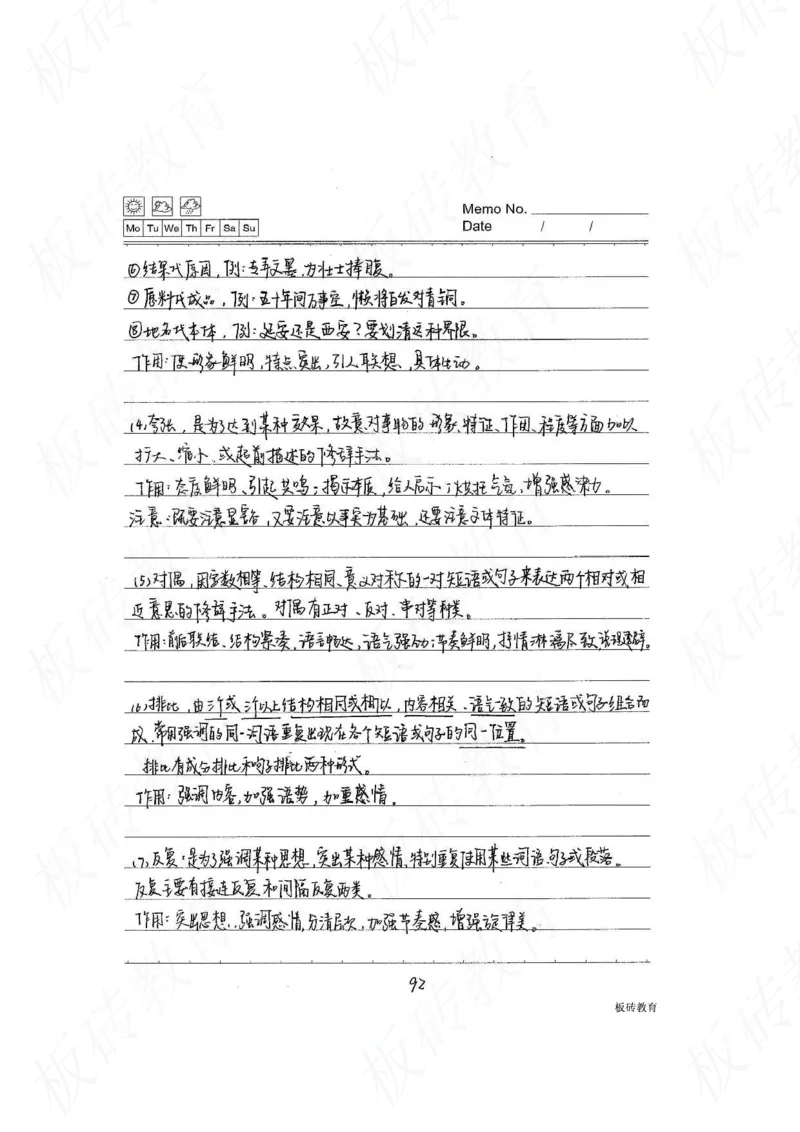 Memo No.
Mo Tu We Th Fr Sa Su
Date / /
⑥结果代原因,例:专弄文墨,为壮士捧腹。
⑦原料代成品,例:五十年间万事空,懒将白发对青铜。
⑧地名代本体,例:延安还是西安?要划清这种界限。
作用:使形象鲜明,特点突出,引人联想、具体生动。
(4)夸张,是为了达到某种效果,故意对事物的形象、特征、作用、程度等方面加以
扩大、缩小、或超前描述的修辞手法。
作用:态度鲜明、引起共鸣;揭示本质,给人启示;烘托气氛,增强感染力。
注意:既要注意显豁,又要注意以事实为基础,还要注意文体特征。
(5)对偶,用字数相等、结构相同、意义对称的一对短语或句子来表达两个相对或相
近意思的修辞手法。对偶有正对、反对、串对等种类。
作用:前后联结、结构紧凑,语言畅达,语气强劲;节奏鲜明,抒情淋漓尽致,说理透辟。
(6)排比,由三个或三个以上结构相同或相似,内容相关、语气一致的短语或句子组合而
成,常用强调的同一词语重复出现在各个短语或句子的同一位置。
排比有成分排比和句子排比两种形式。
作用:强调内容,加强语势,加重感情。
(7)反复:是为了强调某种思想,突出某种感情,特别重复使用某些词语、句子或段落。
反复主要有接连反复和间隔反复两类。
作用:突出思想、强调感情,分清层次,加强节奏感,增强旋律美。
92
板砖教育